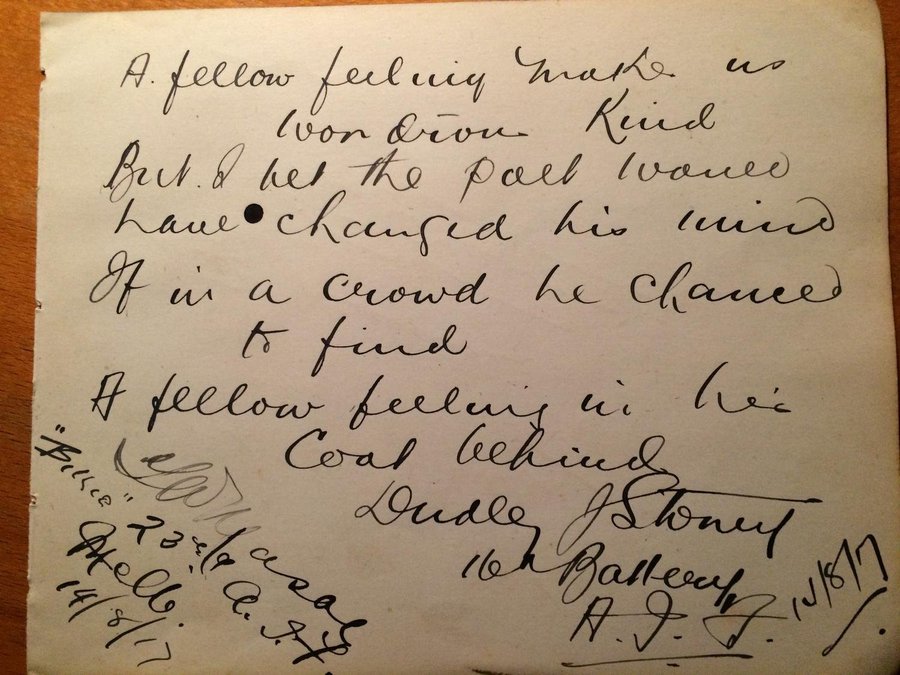 A fellow feeling makes us
wondrous Kind
But I bet the poet would
have changed his mind
If in a crowd he chanced
to find
A fellow feeling in his
Coat behind
Dudley J
16th Battery
A. I. F. 14/8/17
"Billie"
23
A. I. F.
14/8/17